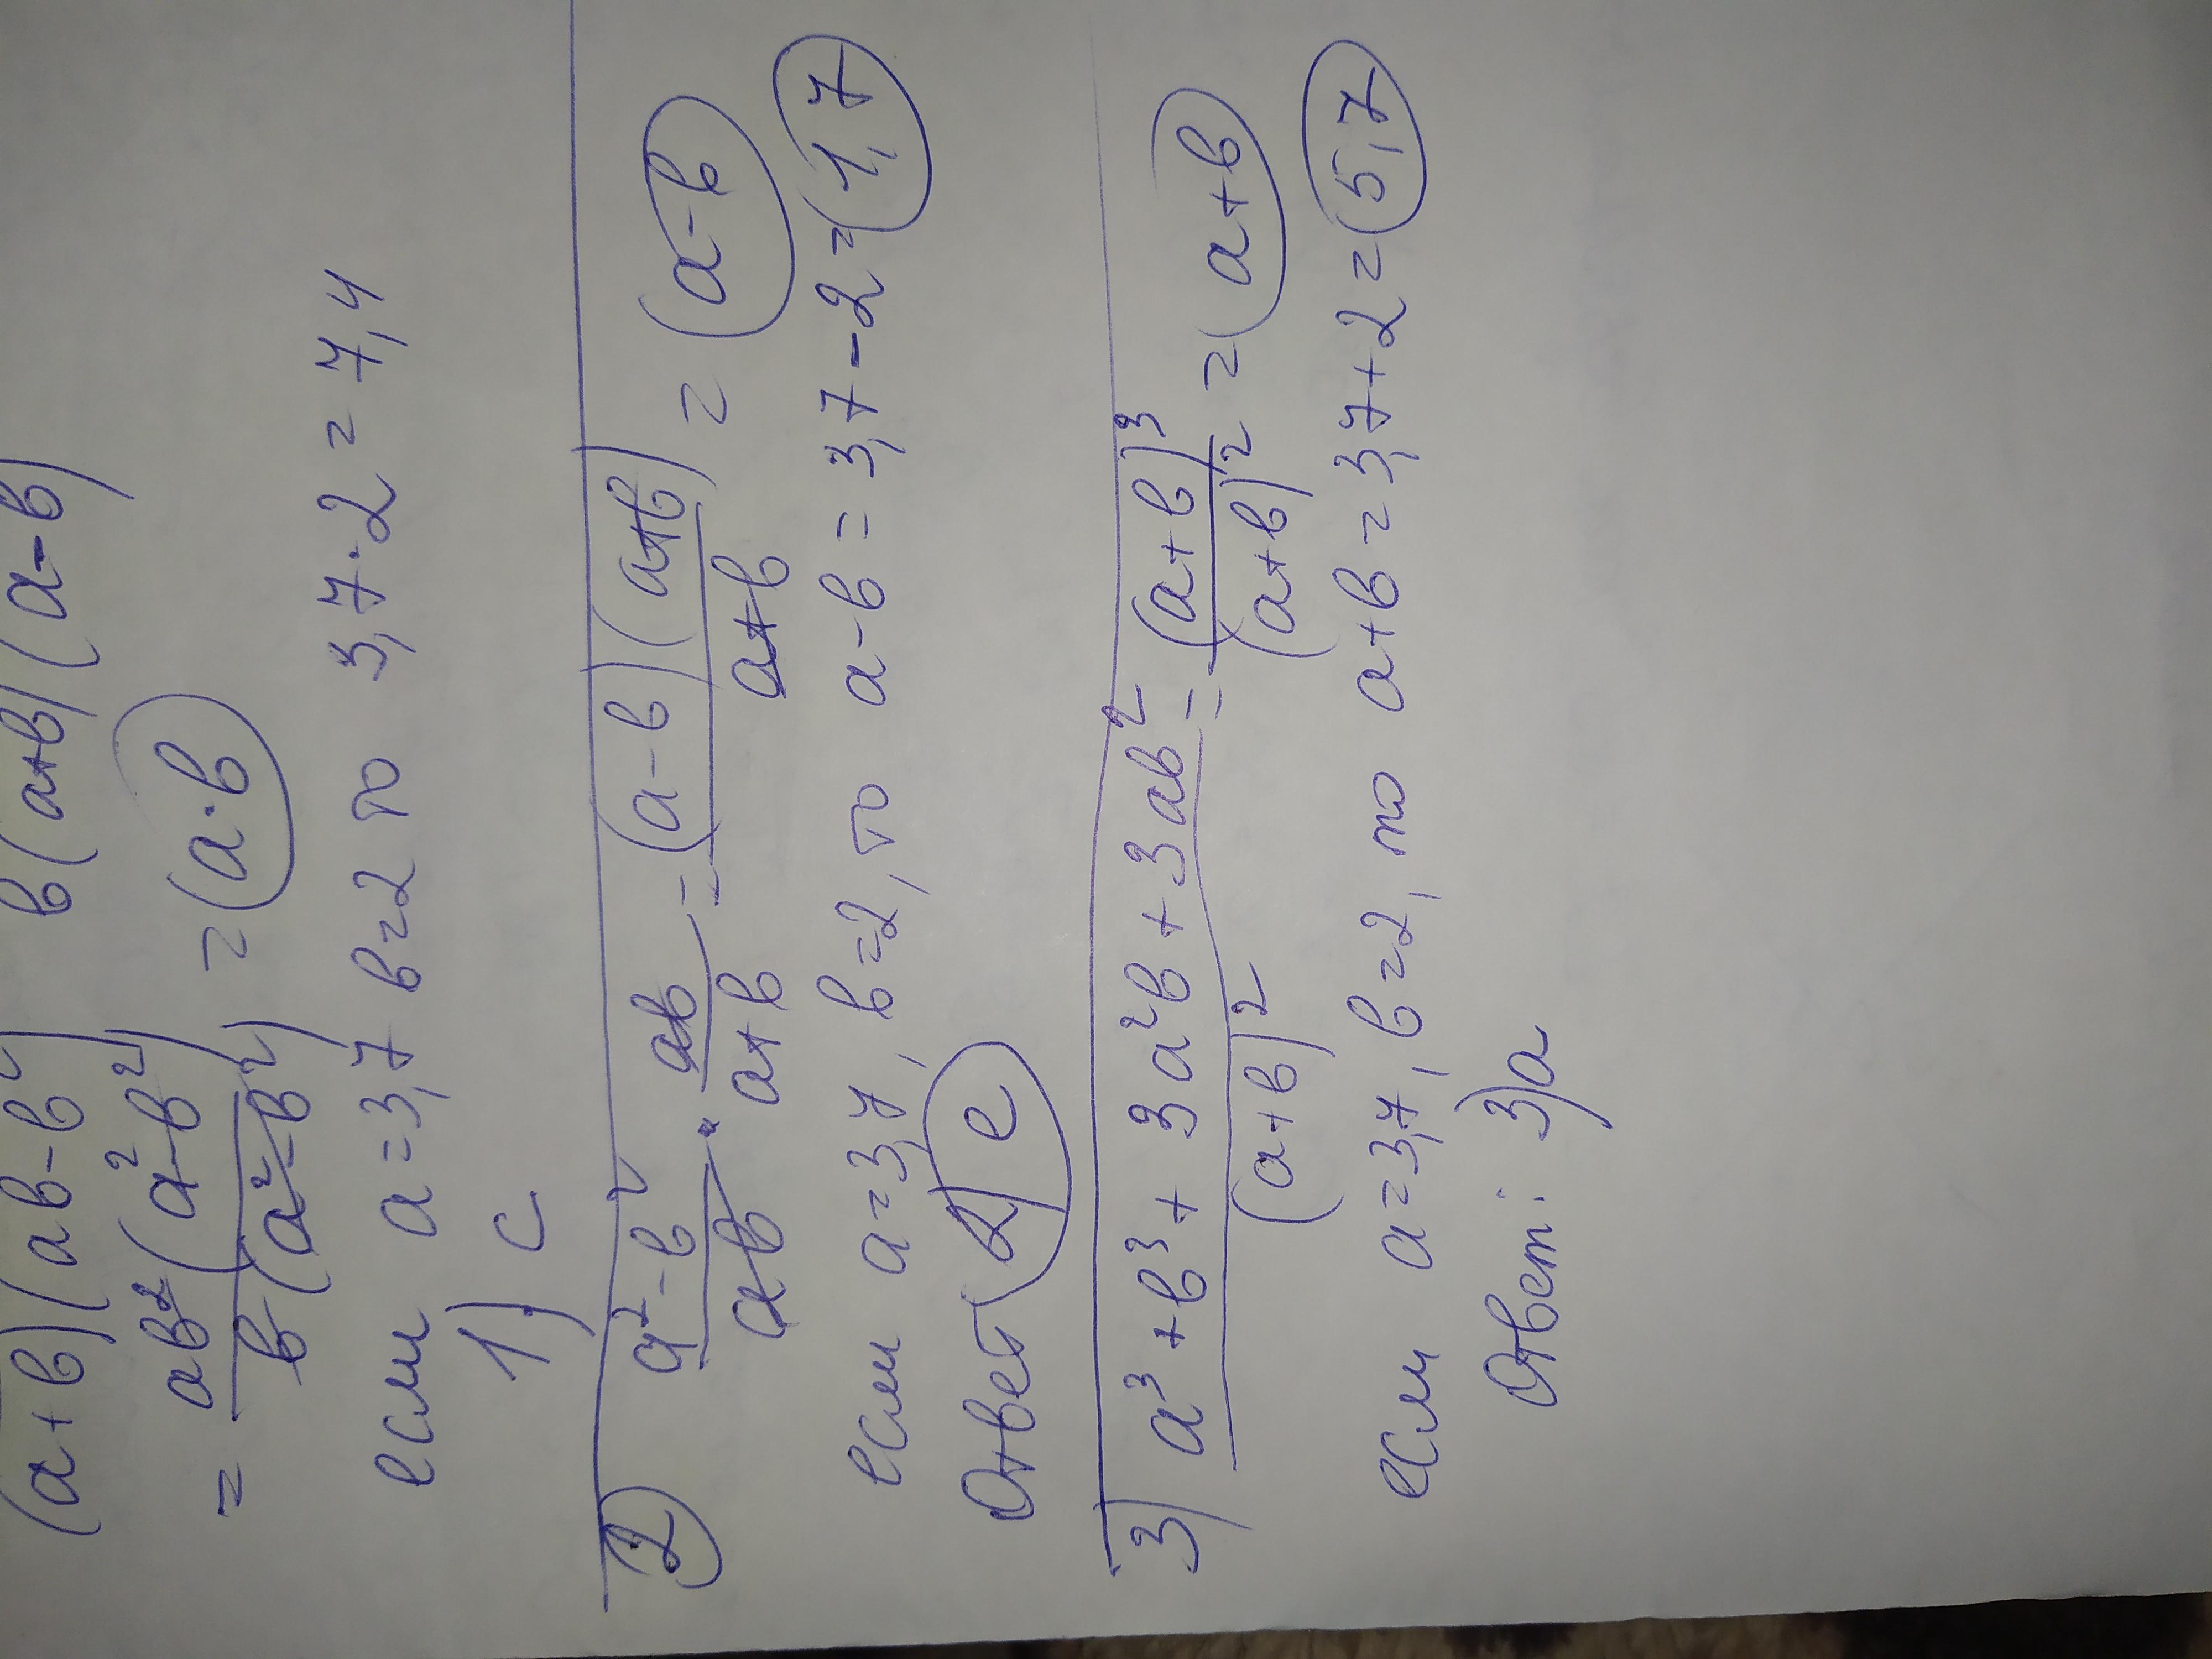 (a+b)(ab-b²) b(a+b)(a-b)
= ab²(a²-b²) / b(a²-b²) = a·b
если a=3,7 b=2 то 3,7·2=7,4
1) c
2) a²-b² / ab · ab / a+b = (a-b)(a+b) / a+b = a-b
если a=3,7, b=2, то a-b=3,7-2=1,7
Ответ 2) e
3) a³+b³+3a²b+3ab² / (a+b)² = (a+b)³ / (a+b)² = a+b
если a=3,7, b=2, то a+b=3,7+2=5,7
Ответ: 3)a